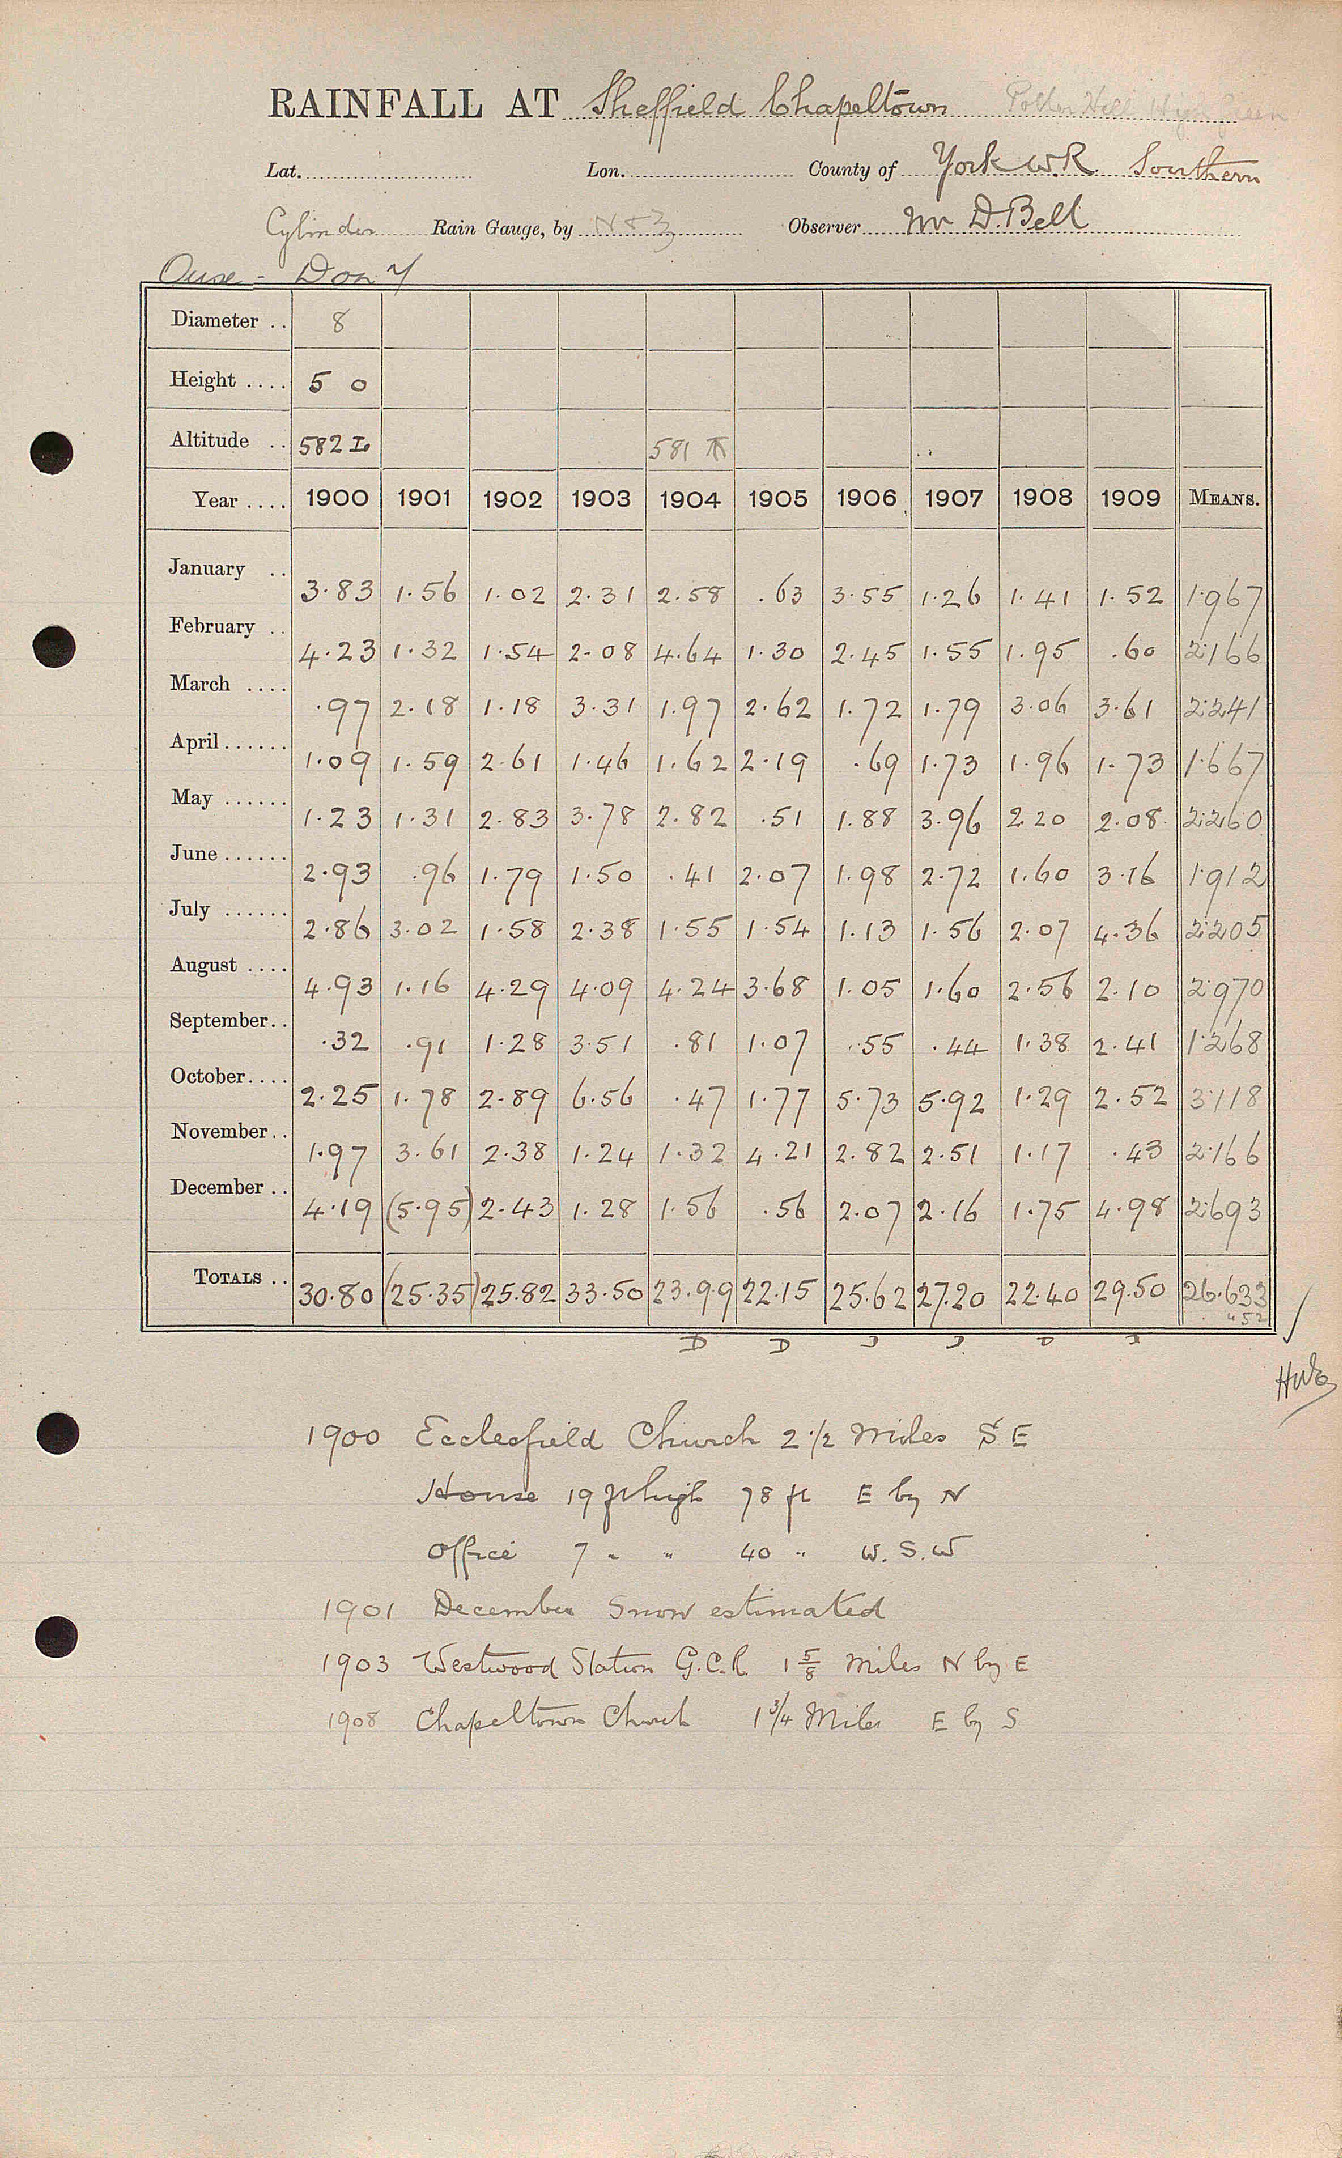 RAINFALL AT Sheffield Chapeltown Potter Hill High Green
Lat. Lon. County of York W.R. Southern
Cylinder Rain Gauge, by N & Z Observer Mr D. Bell
Ouse - Don
Diameter .. 8
Height .... 5 0
Altitude .. 582 581
Year .... 1900 1901 1902 1903 1904 1905 1906 1907 1908 1909 MEANS.
January .. 3.83 1.56 1.02 2.31 2.58 .63 3.55 1.26 1.41 1.52 1.967
February .. 4.23 1.32 1.54 2.08 4.64 1.30 2.45 1.55 1.95 .60 2.166
March .... .97 2.18 1.18 3.31 1.97 2.62 1.72 1.79 3.06 3.61 2.241
April ...... 1.09 1.59 2.61 1.46 1.62 2.19 .69 1.73 1.96 1.73 1.667
May ...... 1.23 1.31 2.83 3.78 2.82 .51 1.88 3.96 2.20 2.08 2.260
June ...... 2.93 .96 1.79 1.50 .41 2.07 1.98 2.72 1.60 3.16 1.912
July ...... 2.86 3.02 1.58 2.38 1.55 1.54 1.13 1.56 2.07 4.36 2.205
August .... 4.93 1.16 4.29 4.09 4.24 3.68 1.05 1.60 2.56 2.10 2.970
September .. .32 .91 1.28 3.51 .81 1.07 .55 .44 1.38 2.41 1.268
October .... 2.25 1.78 2.89 6.56 .47 1.77 5.73 5.92 1.29 2.52 3.118
November .. 1.97 3.61 2.38 1.24 1.32 4.21 2.82 2.51 1.17 .43 2.166
December .. 4.19 (5.95) 2.43 1.28 1.56 .56 2.07 2.16 1.75 4.98 2.693
TOTALS .. 30.80 (25.35) 25.82 33.50 23.99 22.15 25.62 27.20 22.40 29.50 26.633
D D D D D
1900 Ecclesfield Church 2 1/2 Miles S E
House 19 ft high 78 ft E by N
Office 7 " " 40 " W.S.W
1901 December Snow estimated
1903 Westwood Station G.C.R. 1 5/8 Miles N by E
1908 Chapeltown Church 1 3/4 Miles E by S